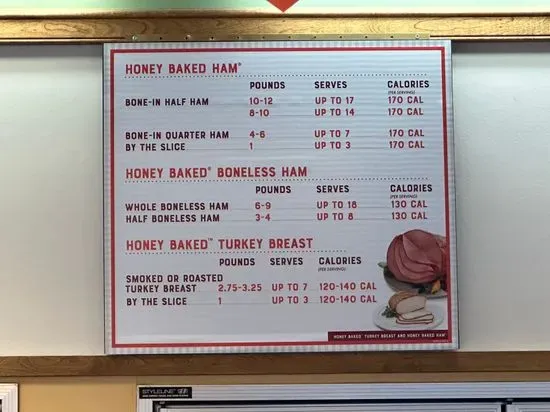 HONEY BAKED HAM®
POUNDS SERVES CALORIES
(PER SERVING)
BONE-IN HALF HAM 10-12 UP TO 17 170 CAL
8-10 UP TO 14 170 CAL
BONE-IN QUARTER HAM 4-6 UP TO 7 170 CAL
BY THE SLICE 1 UP TO 3 170 CAL
HONEY BAKED® BONELESS HAM
POUNDS SERVES CALORIES
(PER SERVING)
WHOLE BONELESS HAM 6-9 UP TO 18 130 CAL
HALF BONELESS HAM 3-4 UP TO 8 130 CAL
HONEY BAKED™ TURKEY BREAST
POUNDS SERVES CALORIES
(PER SERVING)
SMOKED OR ROASTED
TURKEY BREAST 2.75-3.25 UP TO 7 120-140 CAL
BY THE SLICE 1 UP TO 3 120-140 CAL
HONEY BAKED™ TURKEY BREAST AND HONEY BAKED HAM®
STYLELINE